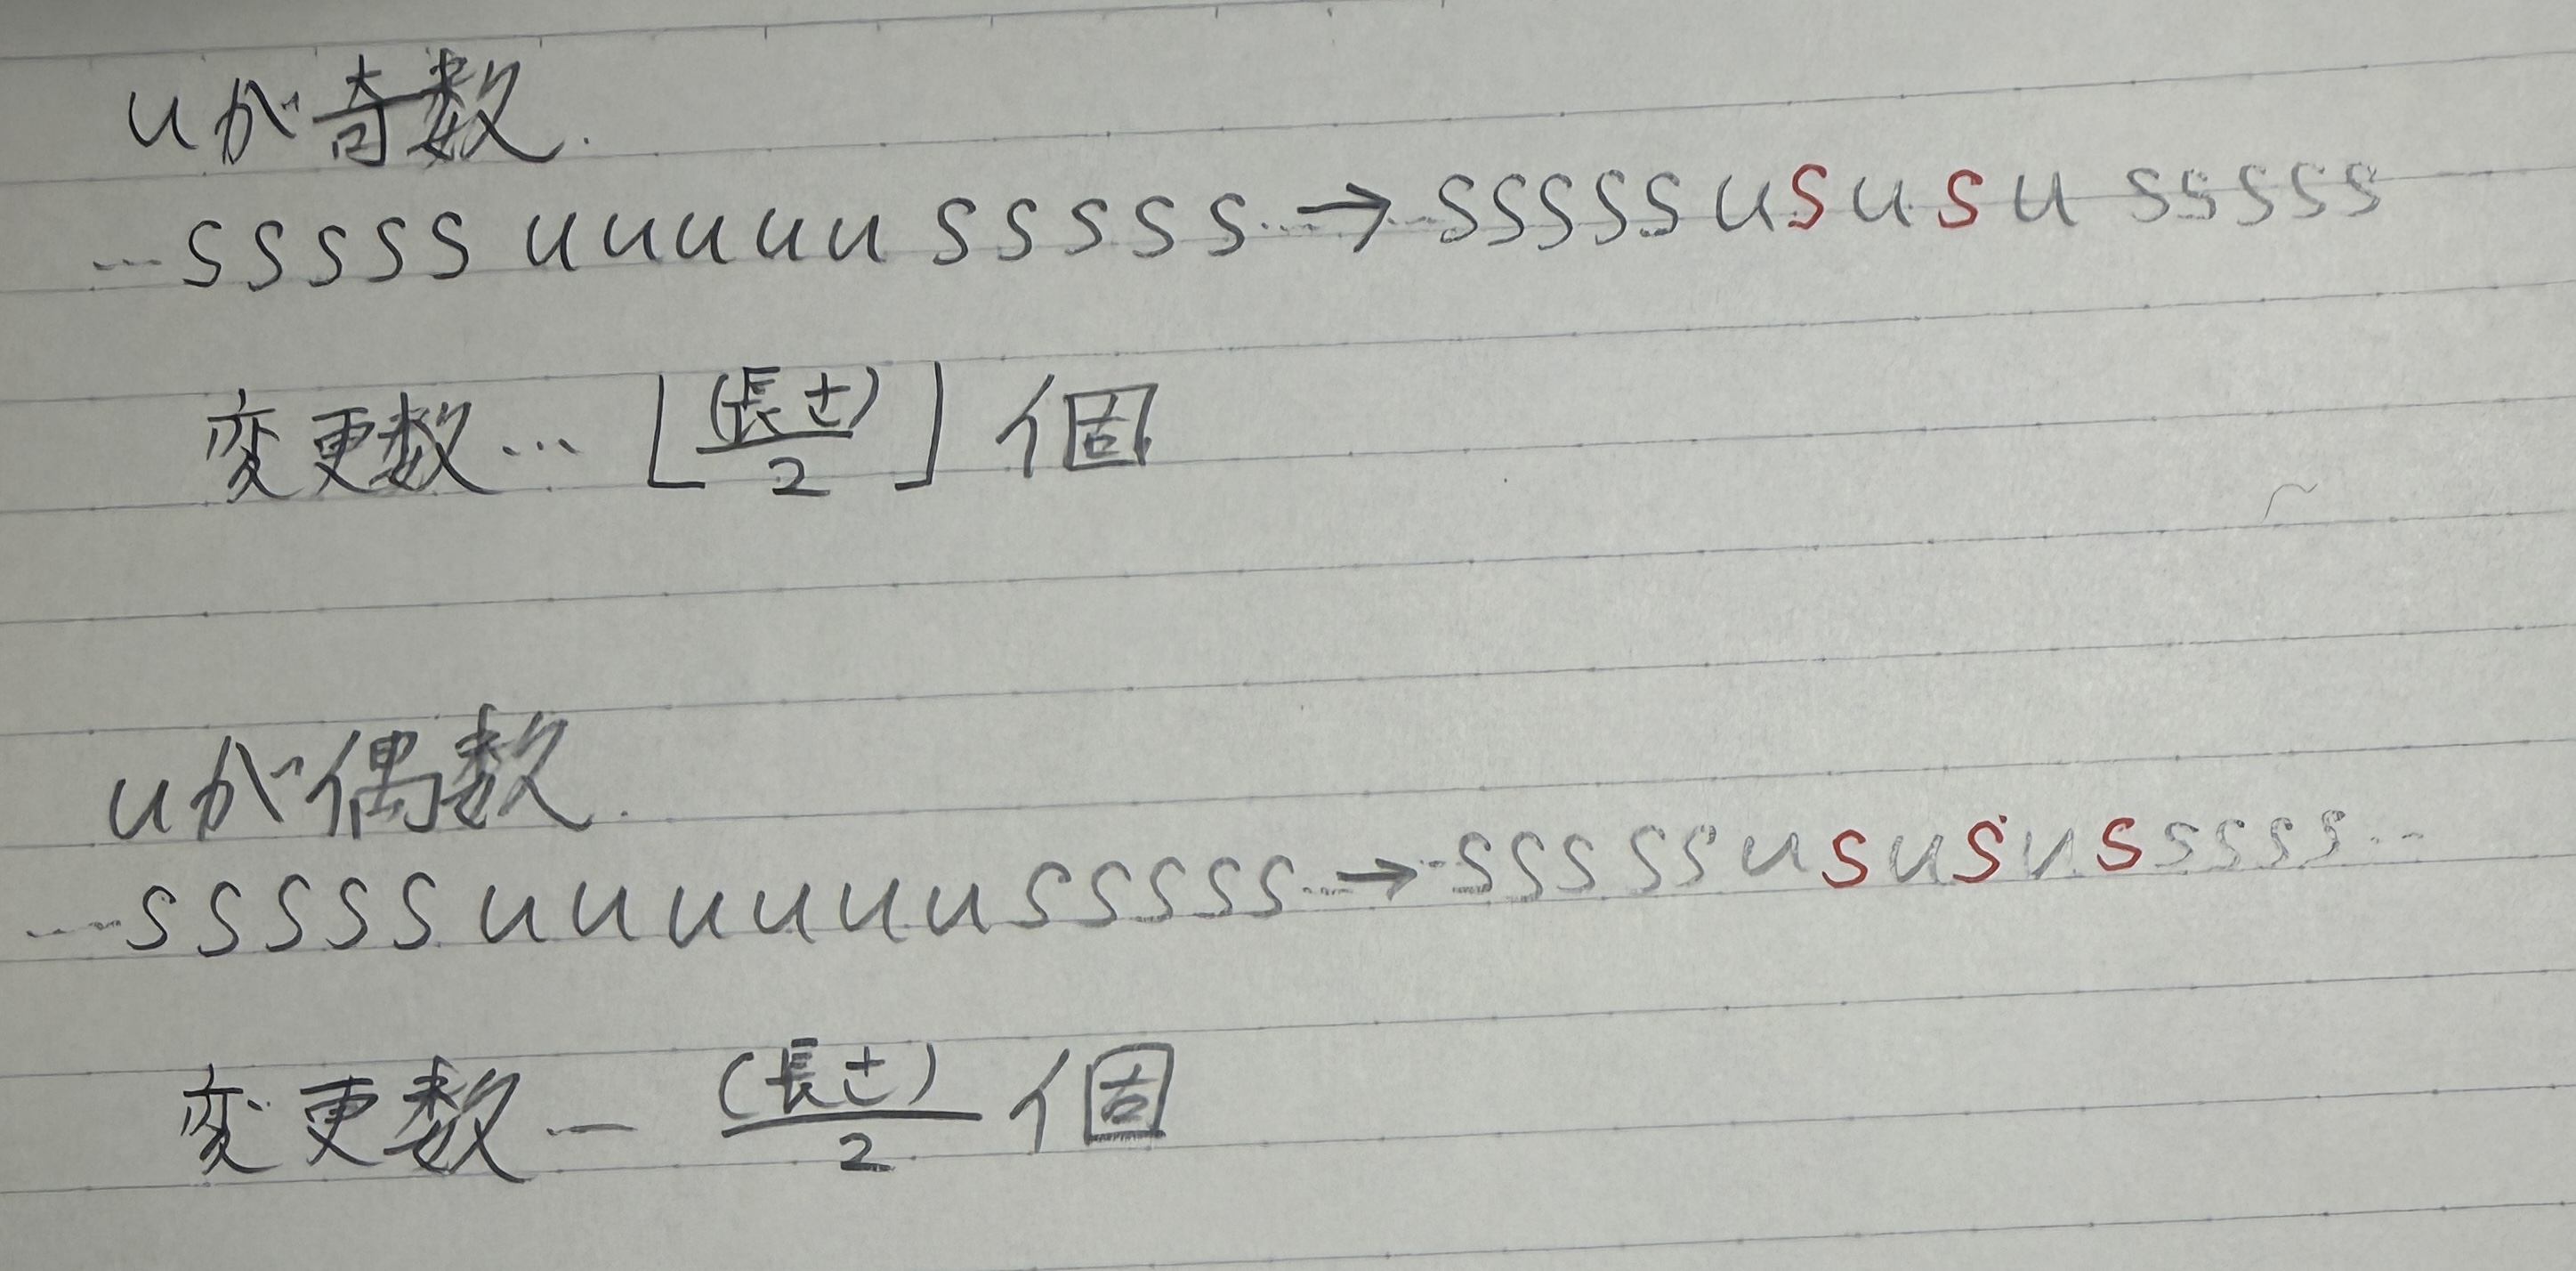 uが奇数.
…sssssuuuuusssss…→…sssssusususssss
変更数…⌊(長さ)/2⌋個
uが偶数.
…sssssuuuuuusssss…→…sssssususussssss…
変更数…(長さ)/2個